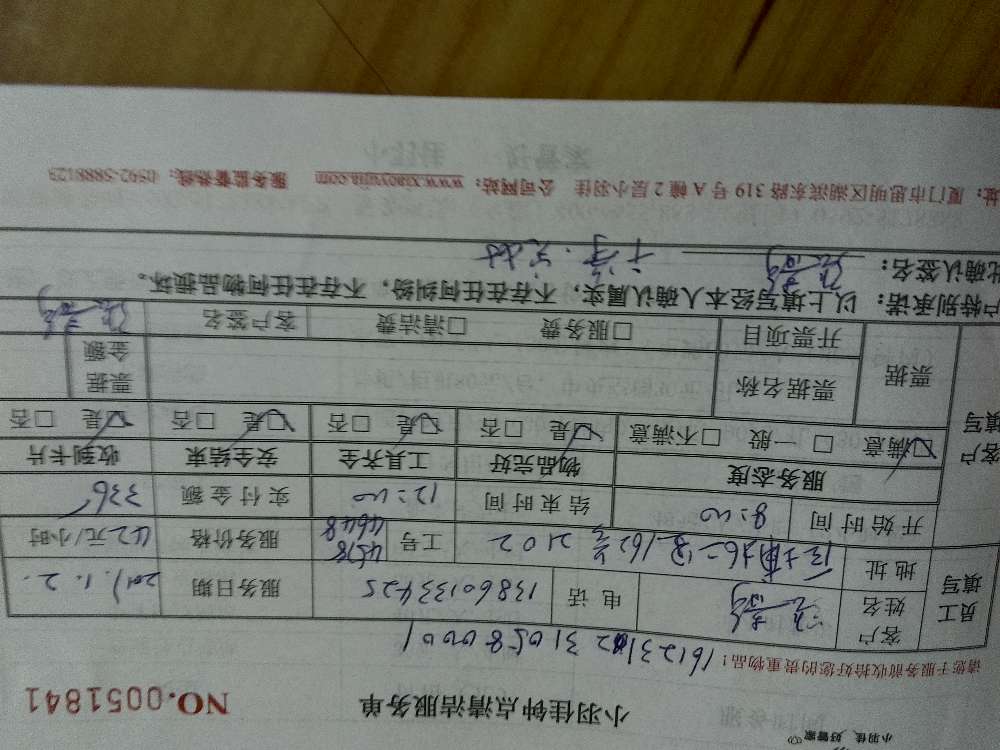 小羽佳 好管家
小羽佳钟点清洁服务单 NO.0051841
请您于服务前收拾好您的贵重物品!
员工填写 客户姓名 电话 13860133425 服务日期 2017.1.2.
地址 2102 工号 4578 4648 服务价格 42元/小时
开始时间 8:00 结束时间 12:00 实付金额 336
客户填写 服务态度 物品完好 工具齐全 安全结束 收到卡片
☑满意 □一般 □不满意 ☑是 □否 ☑是 □否 ☑是 □否 ☑是 □否
票据 票据名称 票据金额
开票项目 □服务费 □清洁费 客户签名
户特别承诺:以上填写经本人确认属实,不存在任何纠纷,不存在任何物品损坏。
此确认签名:
址:厦门市思明区湖滨东路 319 号 A 幢 2 层小羽佳 公司网站:www.xiaoyujia.com 服务监督热线:0592-5888123